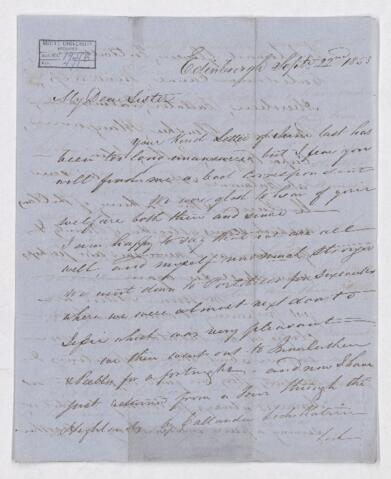 Edinburgh Septr 22nd 1853
My Dear Sister
Your kind Letter of June last has
been too long unanswered but I fear you
will find me a bad correspondent
We were glad to hear of your
welfare both then and since
I am happy to say that we are all
well and myself now much stronger
We went down to Portobello for six weeks
where we were almost next door to
which was very pleasant
we then went out to
& Peebles for a fortnight and now I have
just returned from a Tour through the
Highlands by Callander Loch Katrine